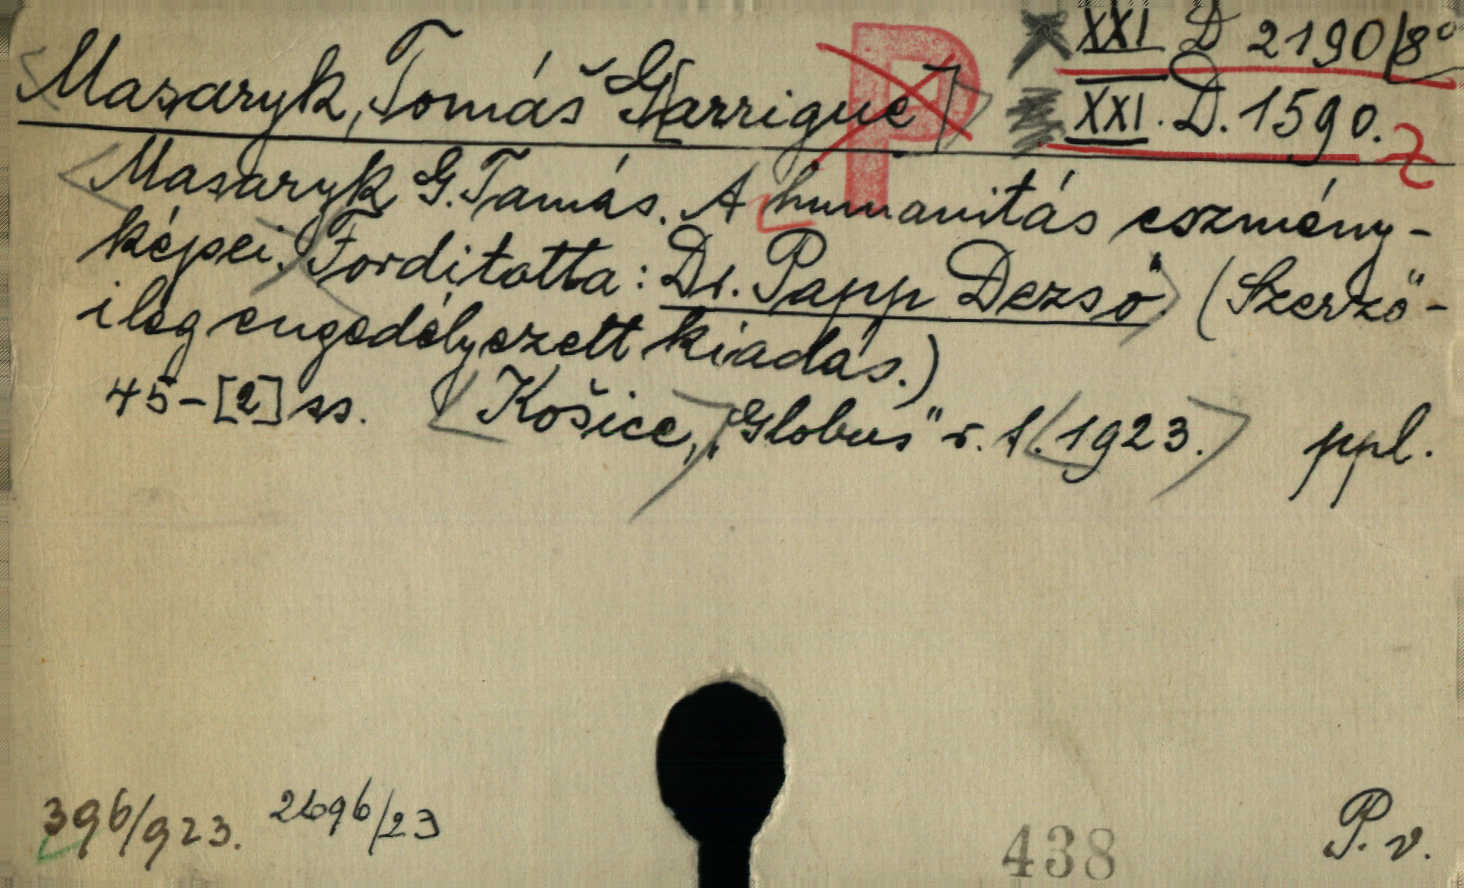 XXI D 2190/8°
Masaryk, Tomáš G[arrigue]
P
XXI. D. 1590.
Masaryk G. Tamás. A humanitás eszmény-
képei. Forditotta: Dr. Papp Dezső (Szerző-
ileg engedélyezett kiadás.)
45-[2] ss. Košice, „Globus" r. t. 1923. ppl.
396/923. 2696/23
438
P. v.